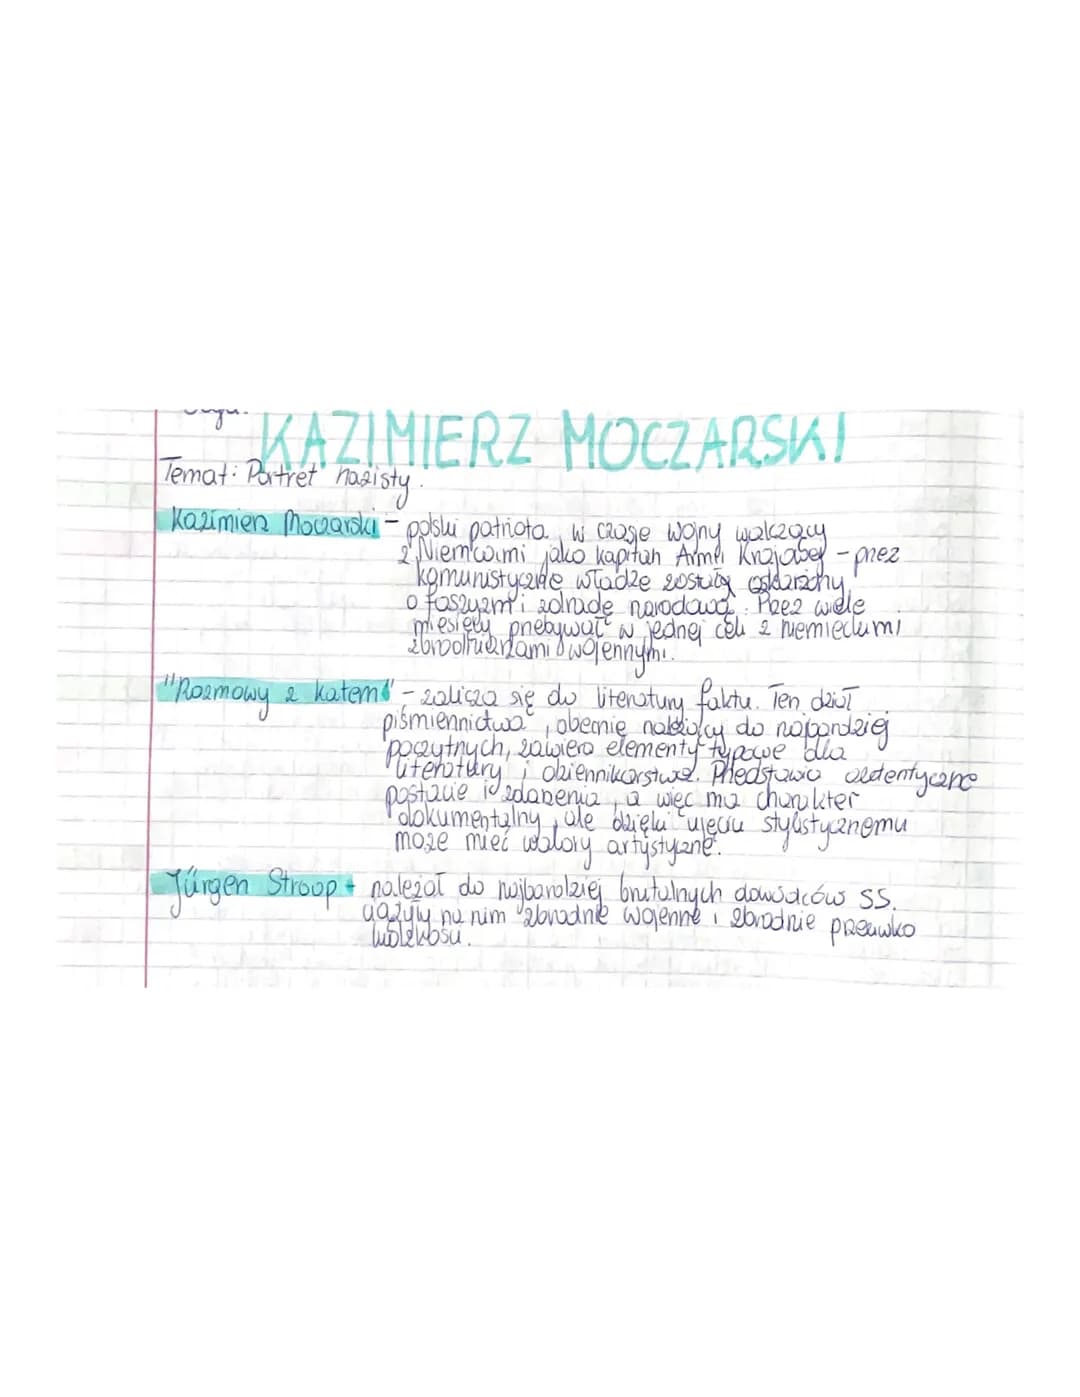 KAZIMIERZ MOCZARSKI
Temat: Portret nazisty.
Kazimierz Moczarski - polski patriota, w czasie wojny walczący
z Niemcami jako kapitan Armii Krajowej - przez
komunistyczne władze został oskarżony
o faszyzm i zdradę narodową. Przez wiele
miesięcy przebywał w jednej celi z niemieckimi
zbrodniarzami wojennymi.
"Rozmowy z katem" - zalicza się do literatury faktu. Ten dział
piśmiennictwa, obecnie należący do najbardziej
poczytnych, zawiera elementy typowe dla
literatury i dziennikarstwa. Przedstawia autentyczne
postacie i zdarzenia, a więc ma charakter
dokumentalny, ale dzięki ujęciu stylistycznemu
może mieć walory artystyczne.
Jürgen Stroop - należał do najbardziej brutalnych dowódców SS.
ciążyły na nim zbrodnie wojenne i zbrodnie przeciwko
ludzkości.